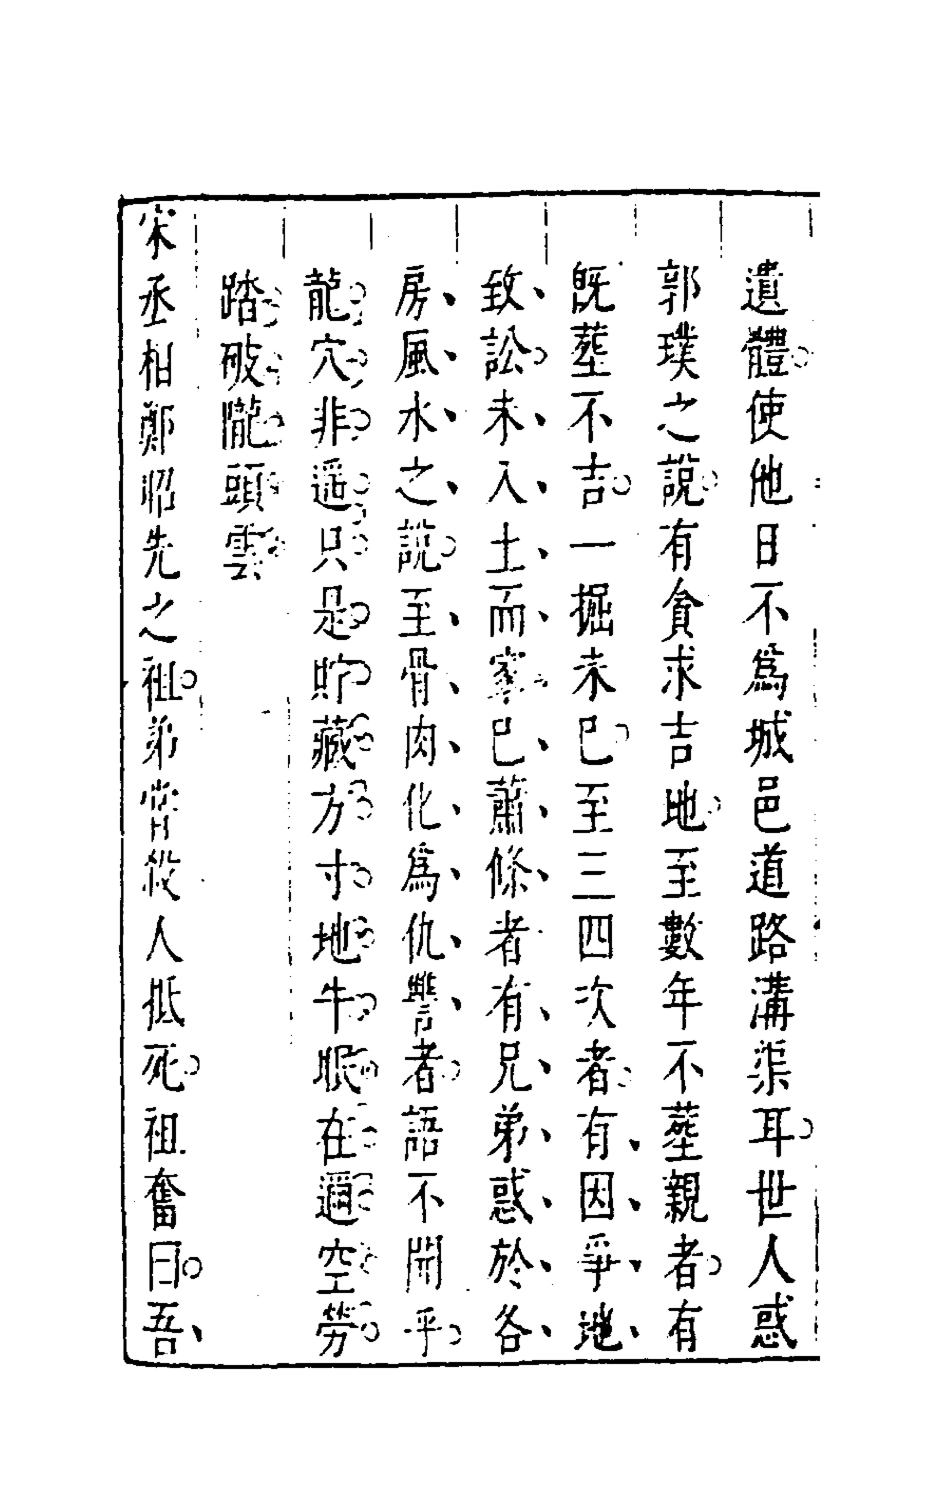 遺體使他日不爲城邑道路溝渠耳世人惑
郭璞之說有貪求吉地至數年不塟親者有
旣塟不吉一掘未已至三四次者有因爭地
致訟未入土而家已蕭條者有兄弟惑於各
房風水之說至骨肉化爲仇讐者語不聞乎
龍穴非遥只是貯藏方寸地牛眠在邇空勞
踏破隴頭雲
宋丞相鄭昭先之祖弟嘗殺人抵死祖奮曰吾